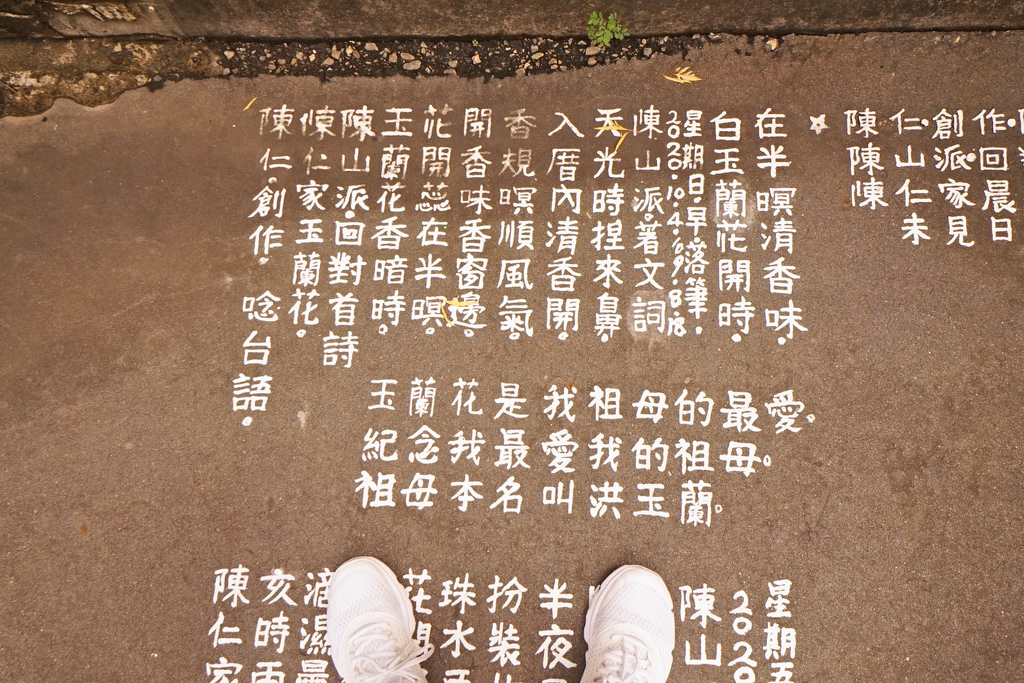 陳仁.創作.
陳山派.回
陳仁家晨
未見日
陳仁.創作. 唸台語.
陳仁家玉蘭花.
陳山派.回對首詩
玉蘭花香暗時.
花開蕊在半暝.
開香味香窗邊.
香規暝順風氣.
入厝內清香開.
天光時捏來鼻.
陳山派.著文詞
2020.10.4.
星期日.早.落筆.
白玉蘭花開時.
在半暝清香味.
玉蘭花是我祖母的最愛。
紀念我最愛我的祖母。
祖母本名叫洪玉蘭。
陳仁家
亥時雨
滴濕
花
珠水
扮裝
半夜
陳山
2020
星期五